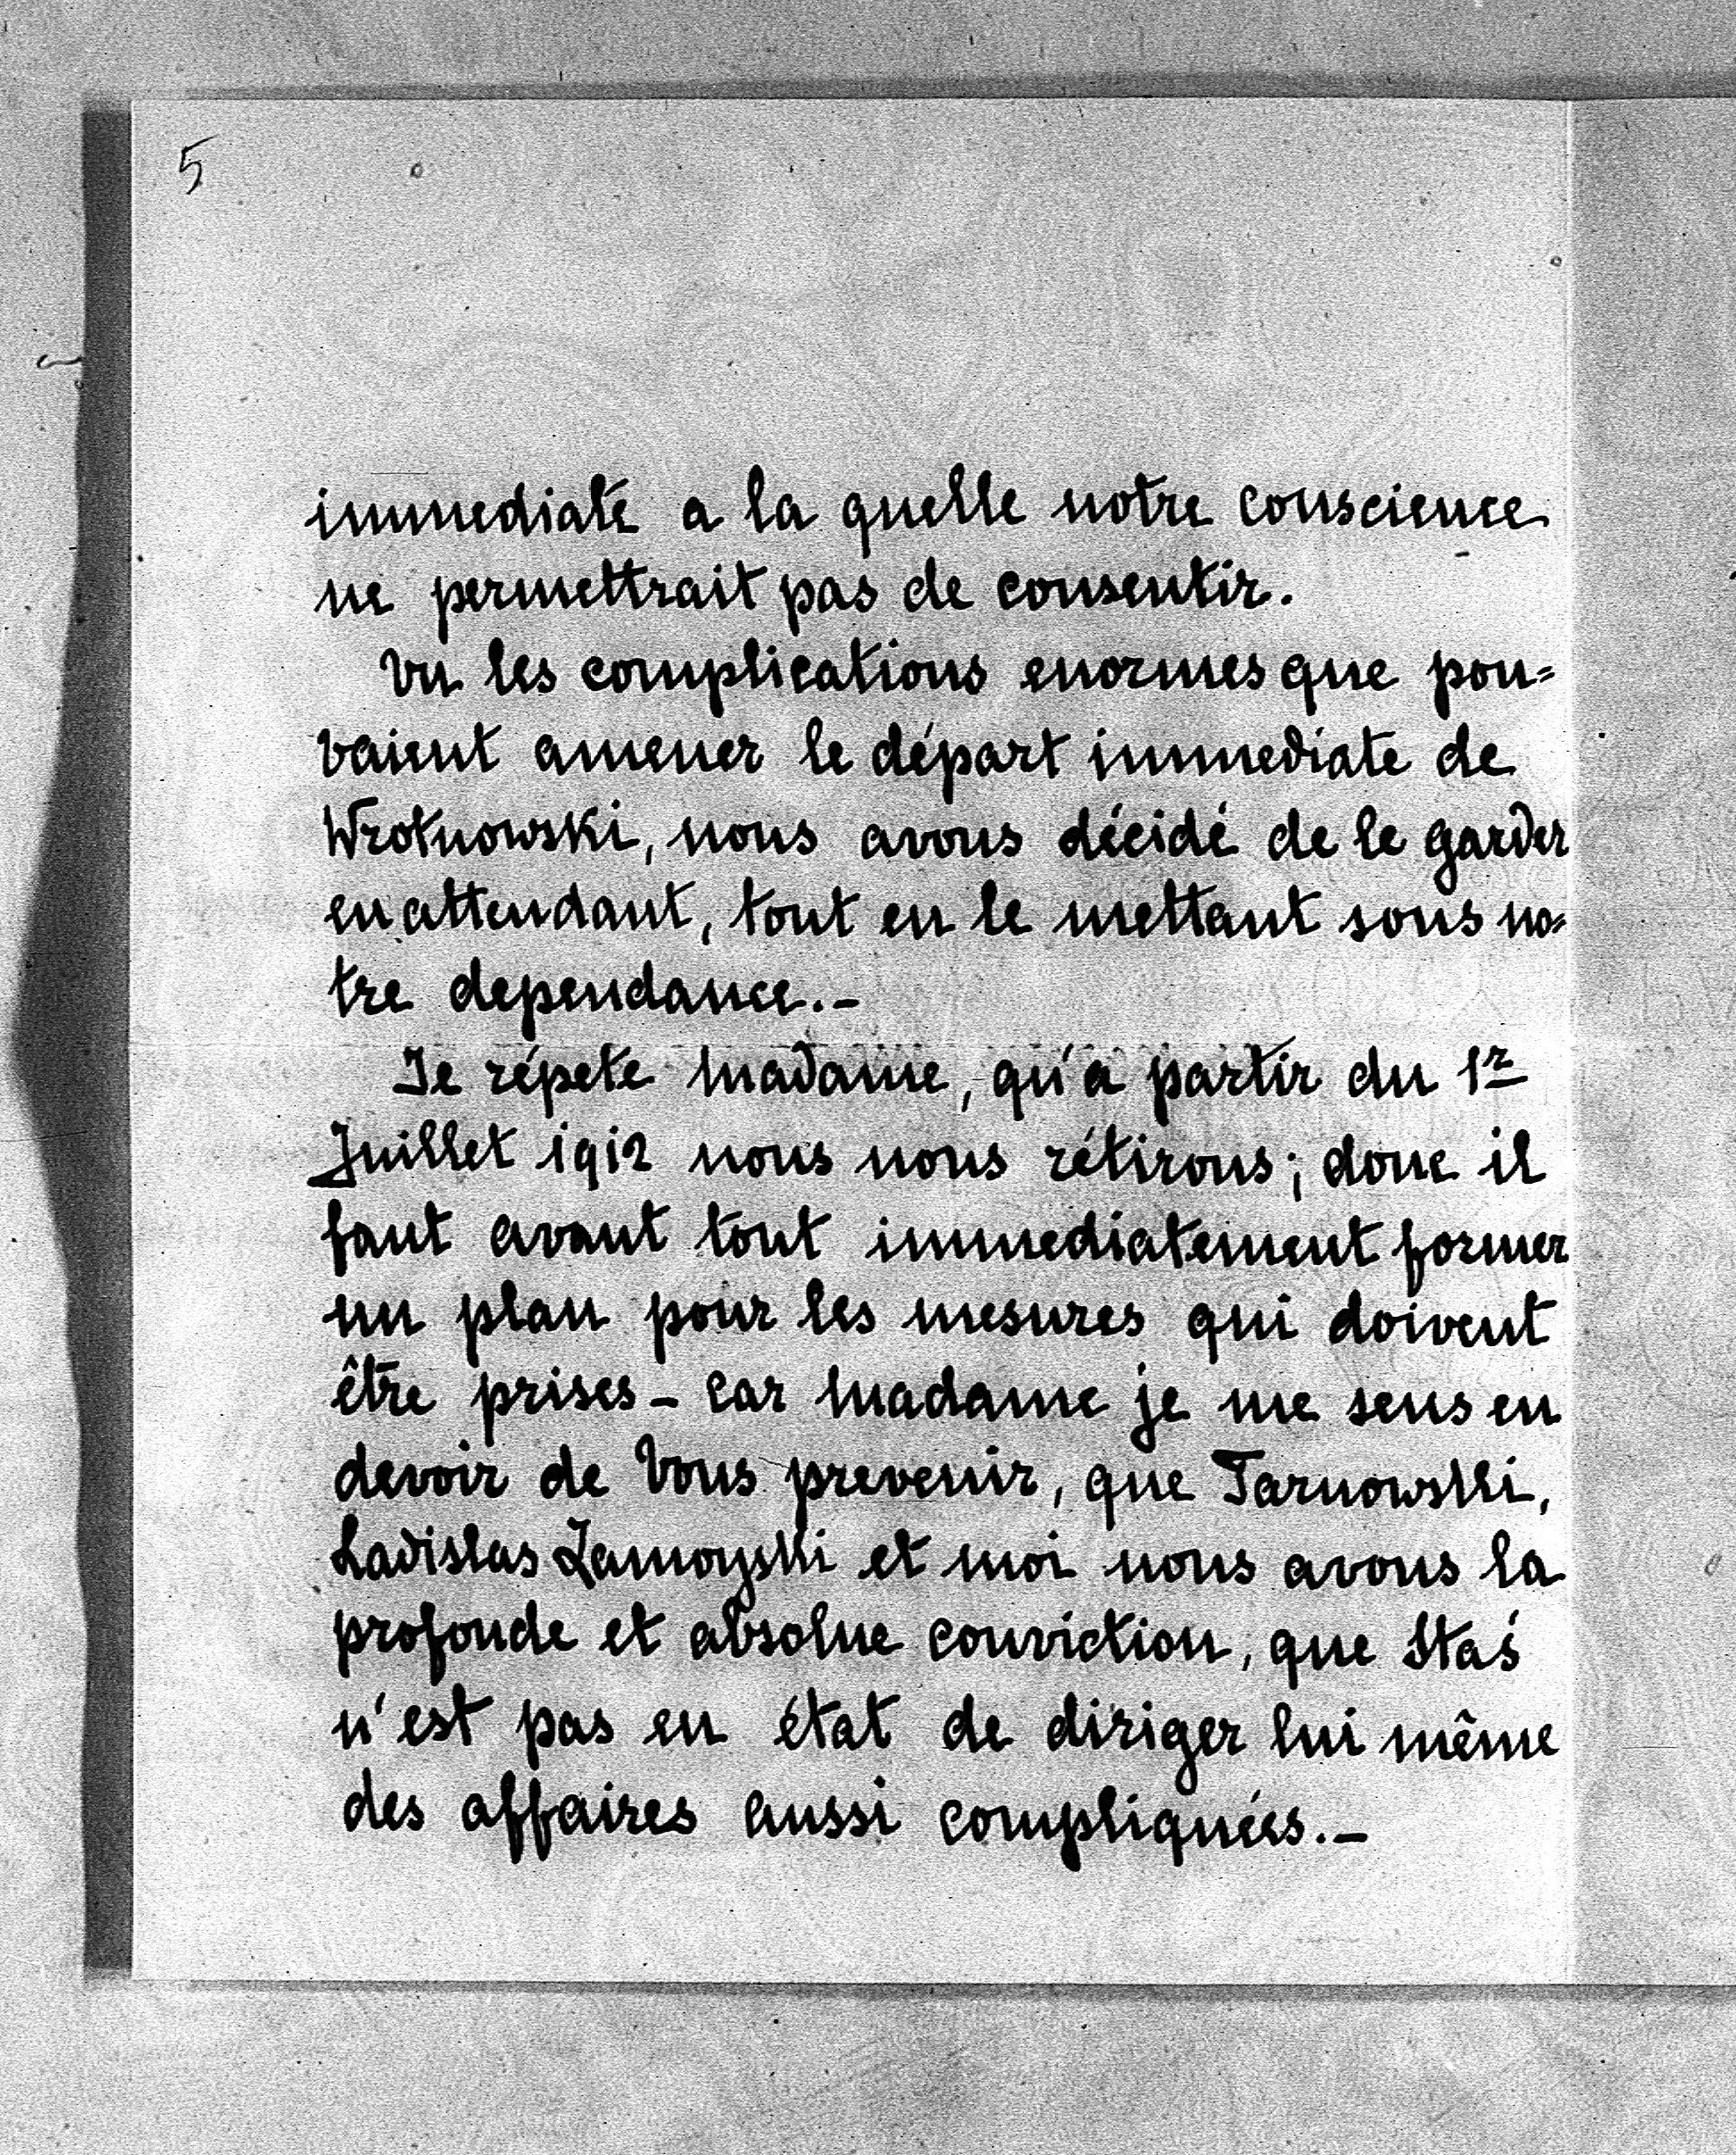 5
immediate a la quelle notre conscience
ne permettrait pas de consentir.
Vu les complications enormes que pou=
vaient amener le départ immediate de
Wrotnowski, nous avons décidé de le garder
en attendant, tout en le mettant sous no=
tre dependance.-
Je répete Madame, qu'a partir du 1r
Juillet 1912 nous nous rétirons; donc il
faut avant tout immediatement former
un plan pour les mesures qui doivent
être prises - car Madame je me sens en
devoir de Vous prevenir, que Tarnowski,
Ladislas Zamoyski et moi nous avons la
profonde et absolue conviction, que Staś
n'est pas en état de diriger lui même
des affaires aussi compliquées.-